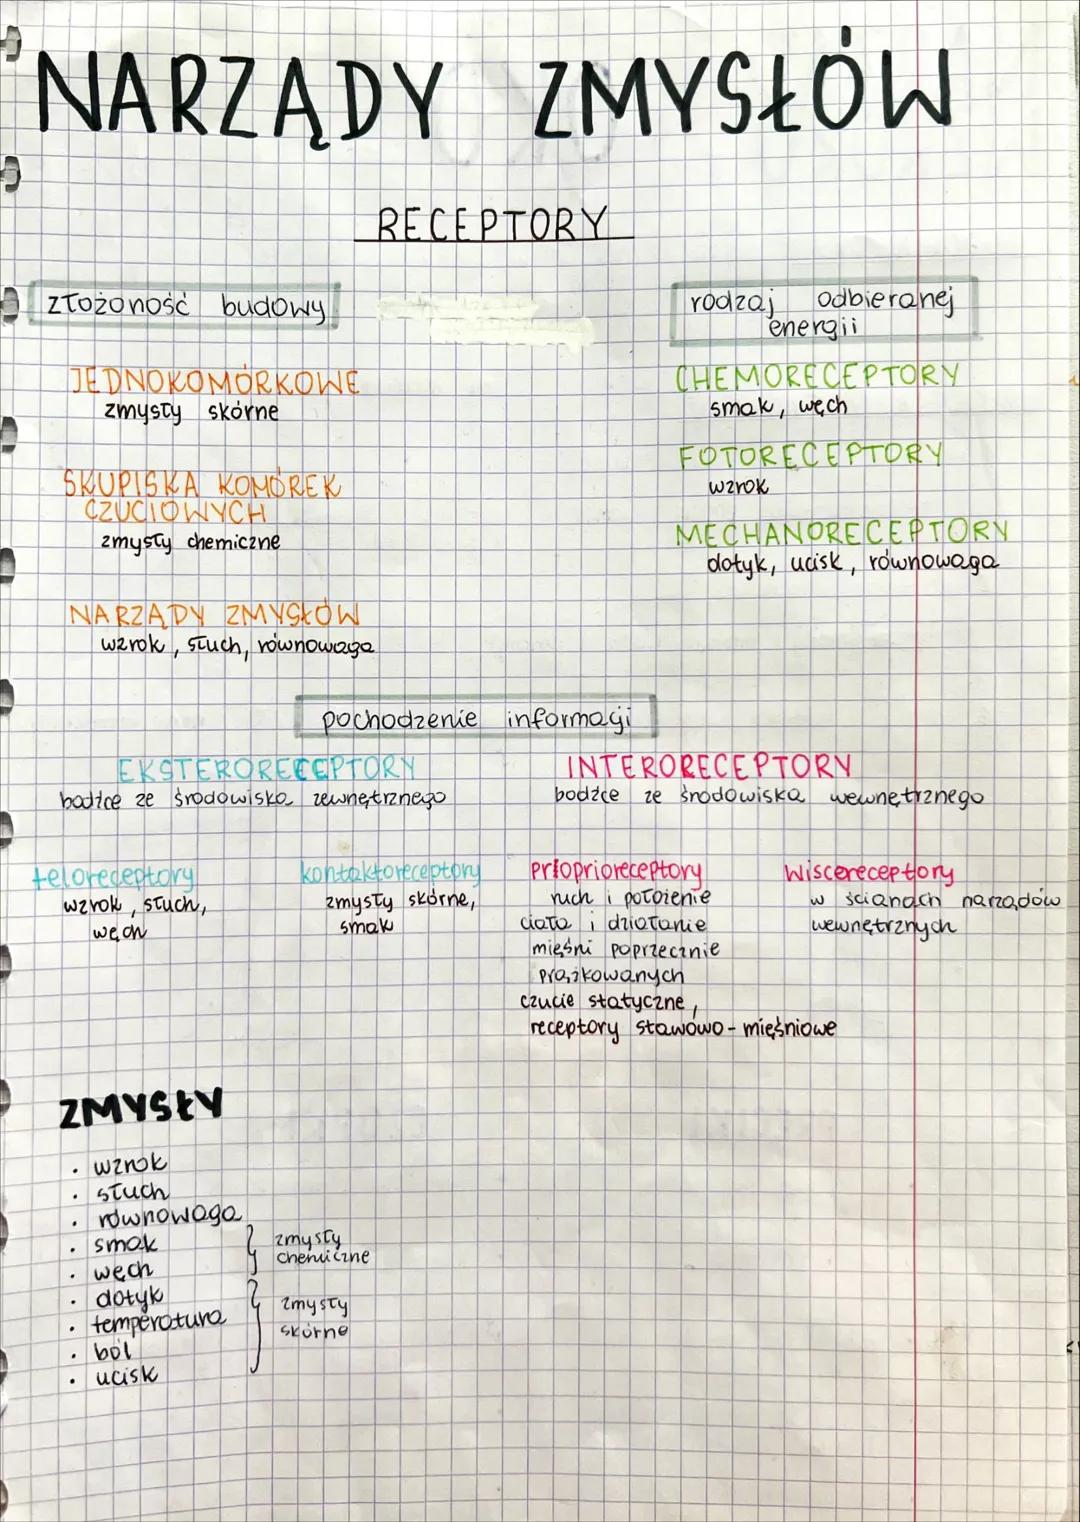 NARZĄDY ZMYSŁÓW
RECEPTORY
złożoność budowy
JEDNOKOMÓRKOWE
zmysły skórne
SKUPISKA KOMÓREK
CZUCIOWYCH
zmysły chemiczne
NARZĄDY ZMYSŁÓW
wzrok, słuch, równowaga
rodzaj odbieranej
energii
CHEMORECEPTORY
smak, węch
FOTORECEPTORY
wzrok
MECHANORECEPTORY
dotyk, ucisk, równowaga
pochodzenie informacji
EKSTERORECEPTORY
bodźce ze środowiska zewnętrznego
INTERORECEPTORY
bodźce ze środowiska wewnętrznego
teloreceptory
wzrok, słuch,
węch
kontaktoreceptory
zmysły skórne,
smak
prioprioreceptory
ruch i położenie
ciała i działanie
mięśni poprzecznie
prążkowanych
czucie statyczne,
receptory stawowo-mięśniowe
wiscereceptory
w ścianach narządów
wewnętrznych
ZMYSŁY
• wzrok
• słuch
• równowaga
• smak
• węch
zmysły
chemiczne
• dotyk
• temperatura
• ból
• ucisk
zmysły
skórne